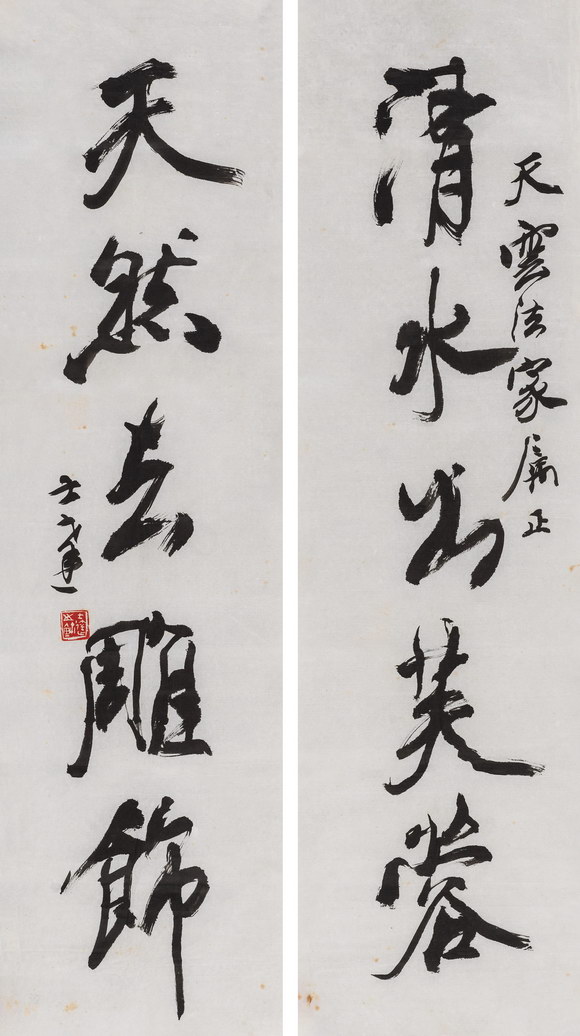 天雲法家屬正
清水出芙蓉
天然去雕飾
士達